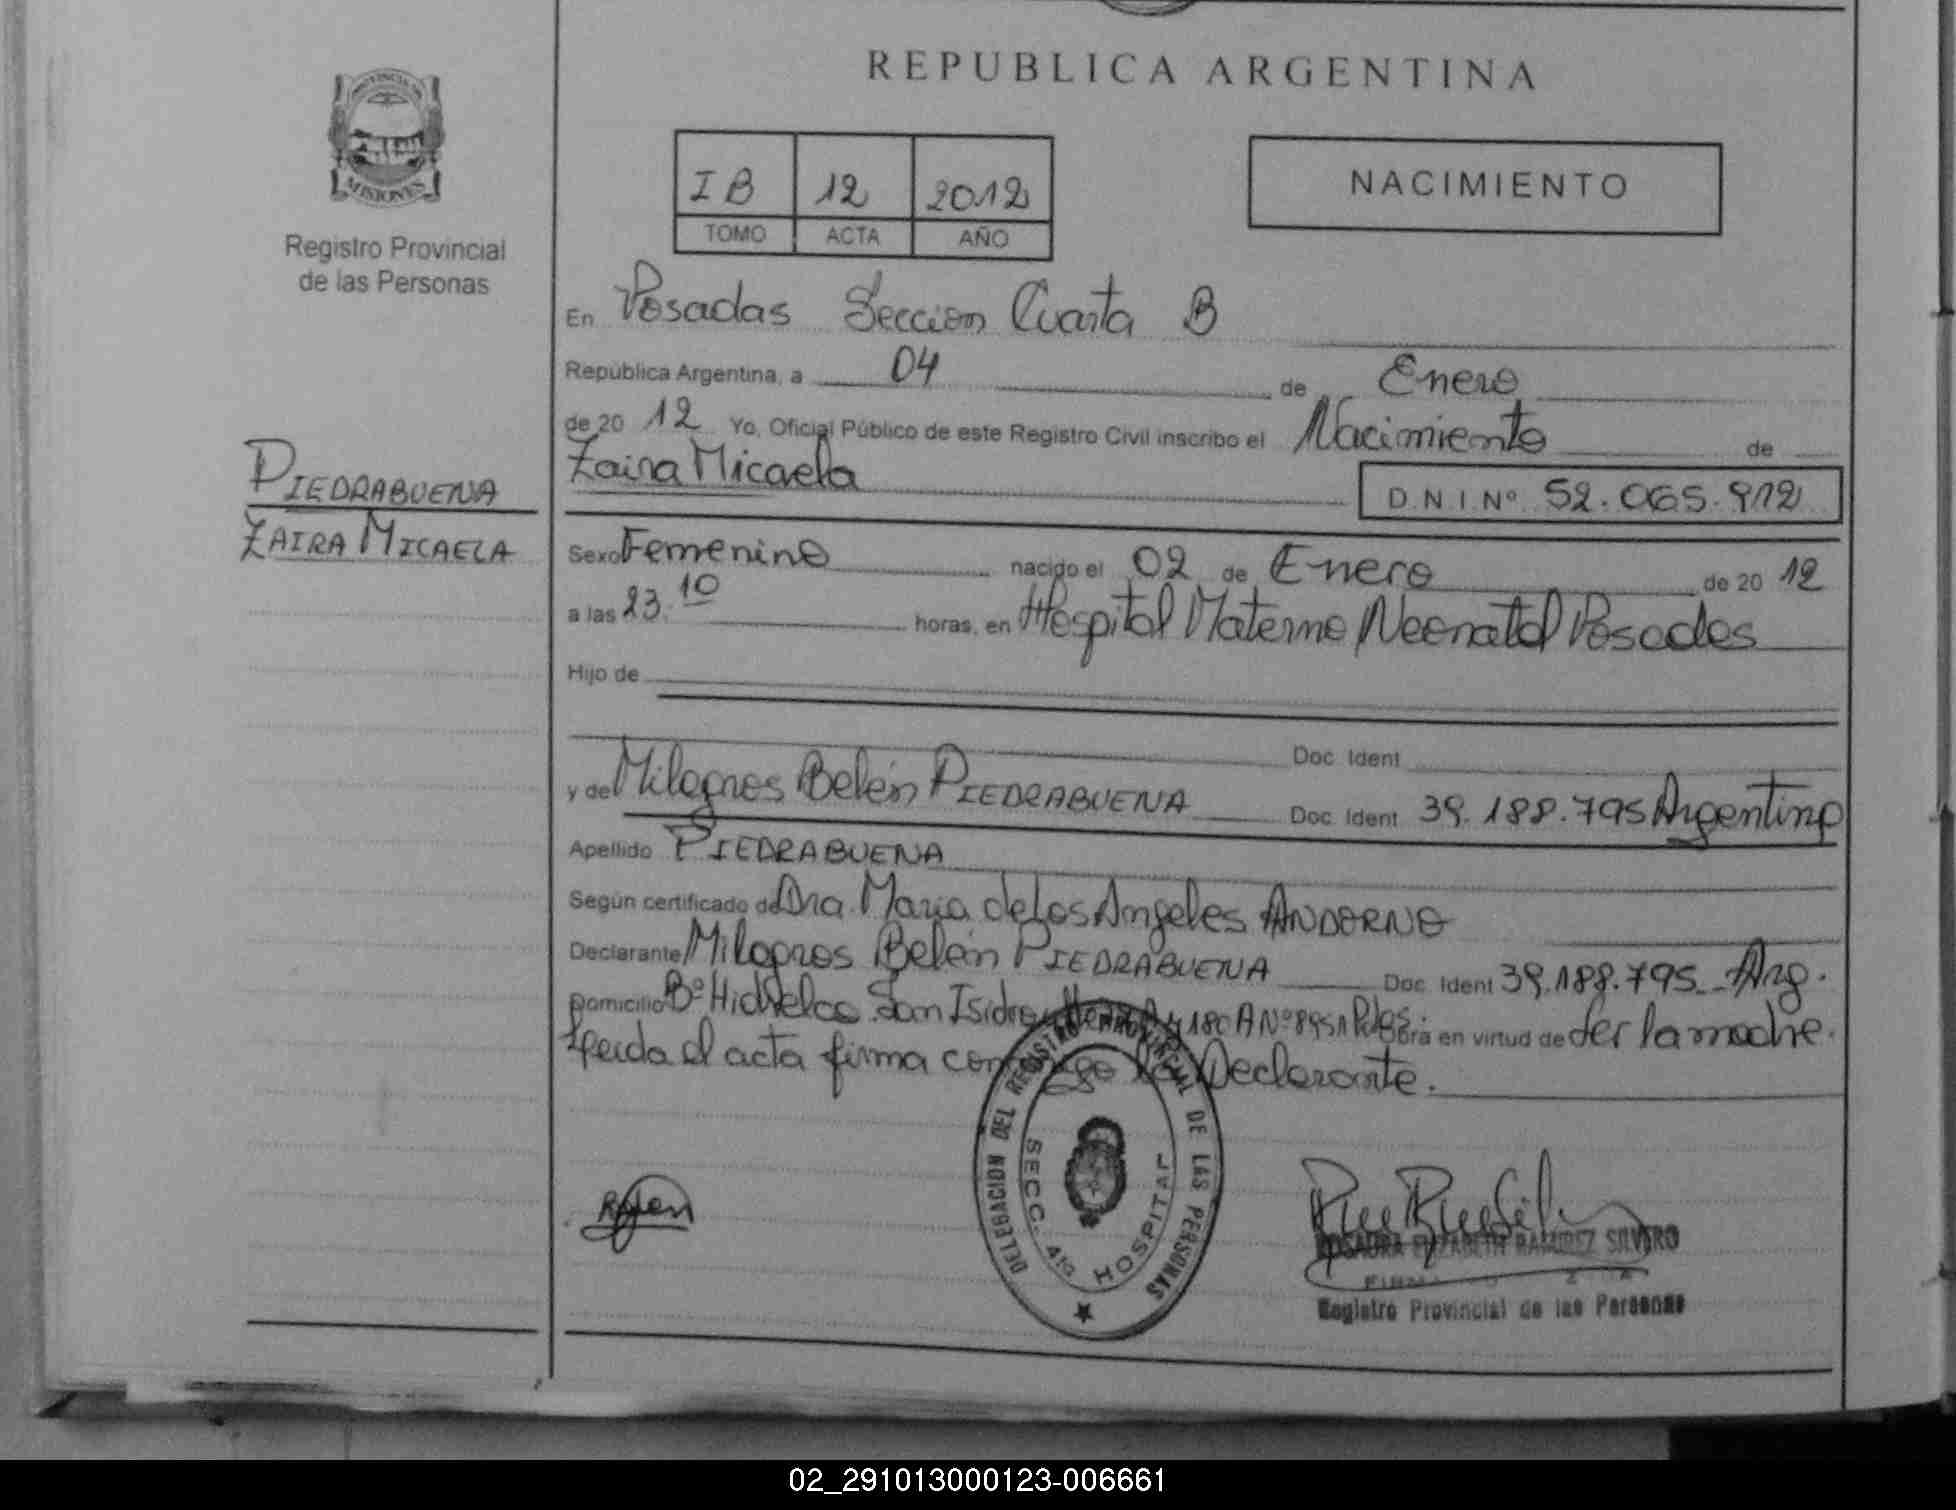 REPUBLICA ARGENTINA
PROVINCIA DE
MISIONES
Registro Provincial
de las Personas
IB 12 2012
TOMO ACTA AÑO
NACIMIENTO
En Posadas Seccion Cuarta B
República Argentina, a 04 de Enero
de 20 12 Yo, Oficial Público de este Registro Civil inscribo el Nacimiento de
Zaira Micaela
D.N.I. Nº 52.065.912
PIEDRABUENA
ZAIRA MICAELA
Sexo Femenino nacido el 02 de Enero de 20 12
a las 23.10 horas, en Hospital Materno Neonatal Posadas
Hijo de
Doc. Ident
y de Milagros Belén PIEDRABUENA Doc. Ident 39.188.795 Argentina
Apellido PIEDRABUENA
Según certificado de Dra. Maria de Los Angeles ANDORNO
Declarante Milagros Belén PIEDRABUENA Doc. Ident 39.188.795 Arg.
Domicilio Bº San Isidro 180 A Nº Obra en virtud de ser la madre.
Leida el acta firma la Declarante.
DELEGACION DEL REGISTRO PROVINCIAL DE LAS PERSONAS
SECC. HOSPITAL
Belen
ROSAURA ELIZABETH RAMIREZ SILVERO
Registro Provincial de las Personas
02_291013000123-006661